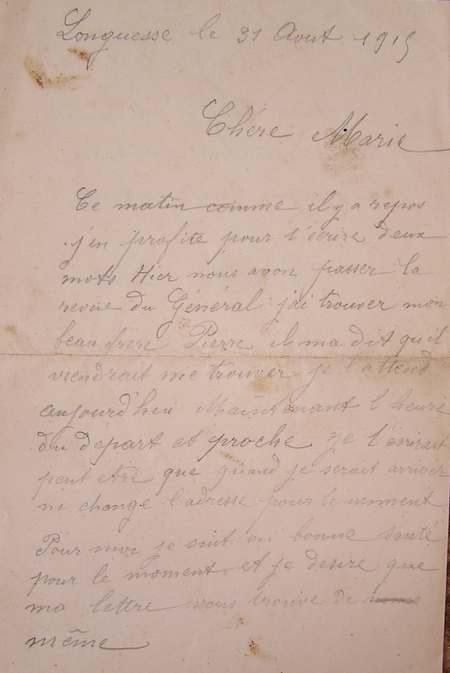 Longuesse le 31 Aout 1915
Chère Marie
Ce matin comme il y a repos
j'en profite pour t'écrire deux
mots Hier nous avon passer la
revue du Général j'ai trouver mon
beau frere Pierre il ma dit qu'il
viendrait me trouver je l'attend
aujourd'hui Maintenant l'heure
du depart et proche je t'écrirait
peut etre que quand je serait arriver
ne change l'adresse pour le moment
Pour moi je suit en bonne santé
pour le moment et je desire que
ma lettre vous trouve de
même